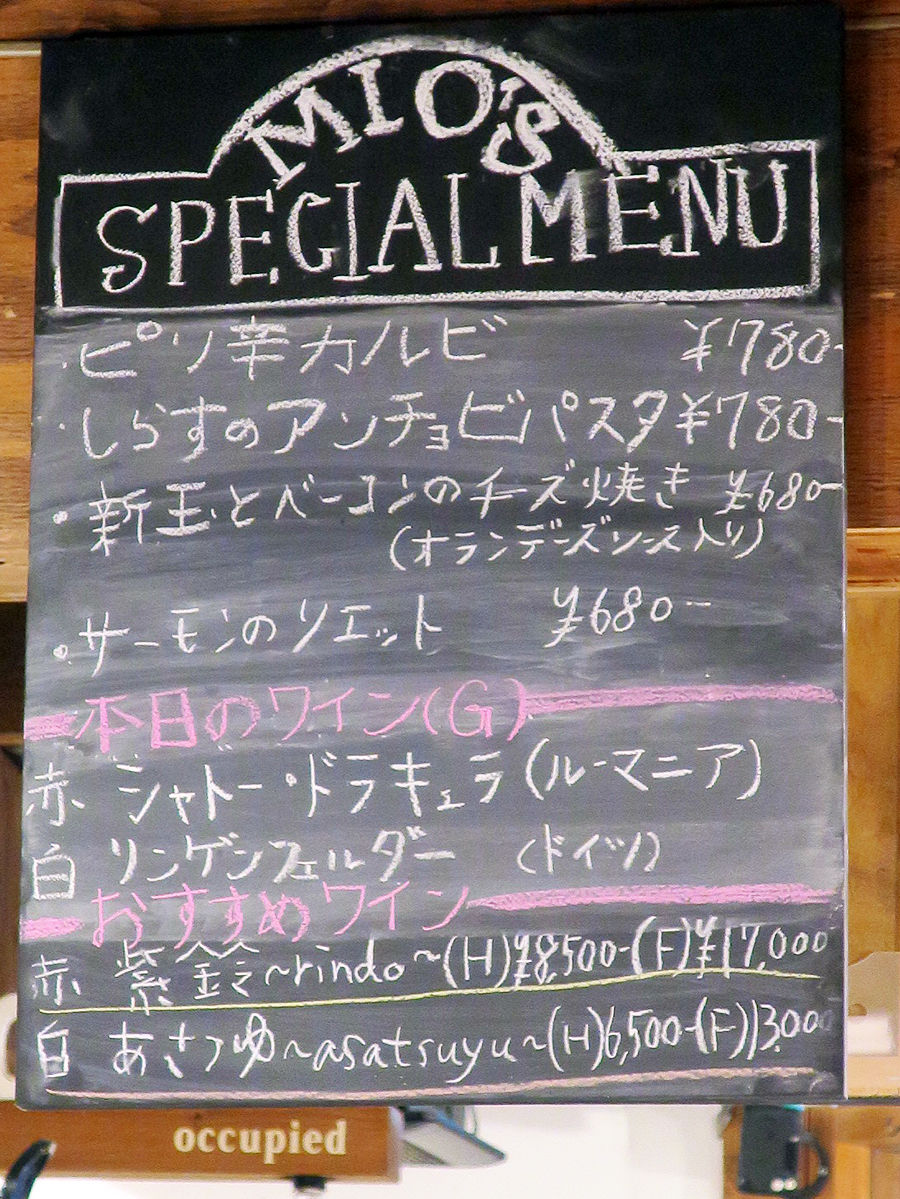 MIO'S
SPECIAL MENU
・ピリ辛カルビ ¥780-
・しらすのアンチョビパスタ ¥780-
・新玉とベーコンのチーズ焼き ¥680-
(オランデーズソース入り)
・サーモンのリエット ¥680-
本日のワイン(G)
赤 シャトー・ドラキュラ(ルーマニア)
白 リンゲンフェルダー (ドイツ)
おすすめワイン
赤 紫鈴~rindo~(H)¥8,500-(F)¥17,000
白 あさつゆ~asatsuyu~(H)6,500-(F)13,000
occupied